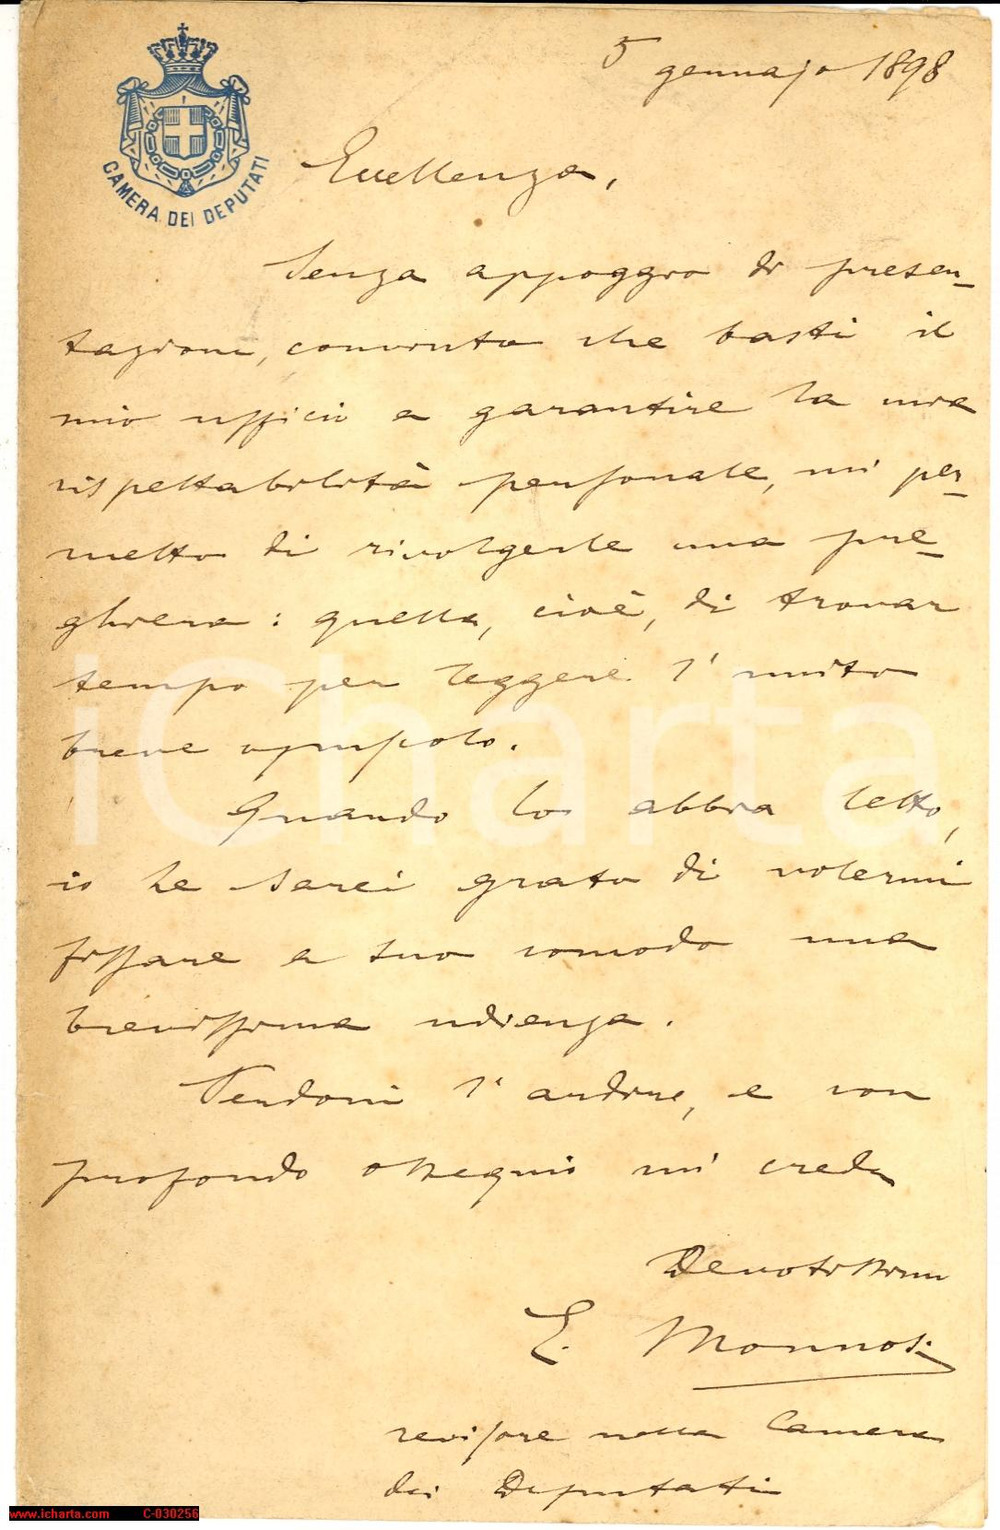 5 gennajo 1898
CAMERA DEI DEPUTATI
Eccellenza,
Senza appoggio di presen-
tazioni, convinto che basti il
mio ufficio a garantire la mia
rispettabilità personale, mi per-
metto di rivolgerle una pre-
ghiera: quella, cioè, di trovar
tempo per leggere l'unito
breve opuscolo.
Quando lo abbia letto,
io Le sarei grato di volermi
fissare a suo comodo una
brevissima udienza.
Perdoni l'ardire, e con
profondo ossequio mi creda
Devotissimo
E. Mannosi
revisore nella Camera
dei Deputati
iCharta
www.icharta.com C-030256